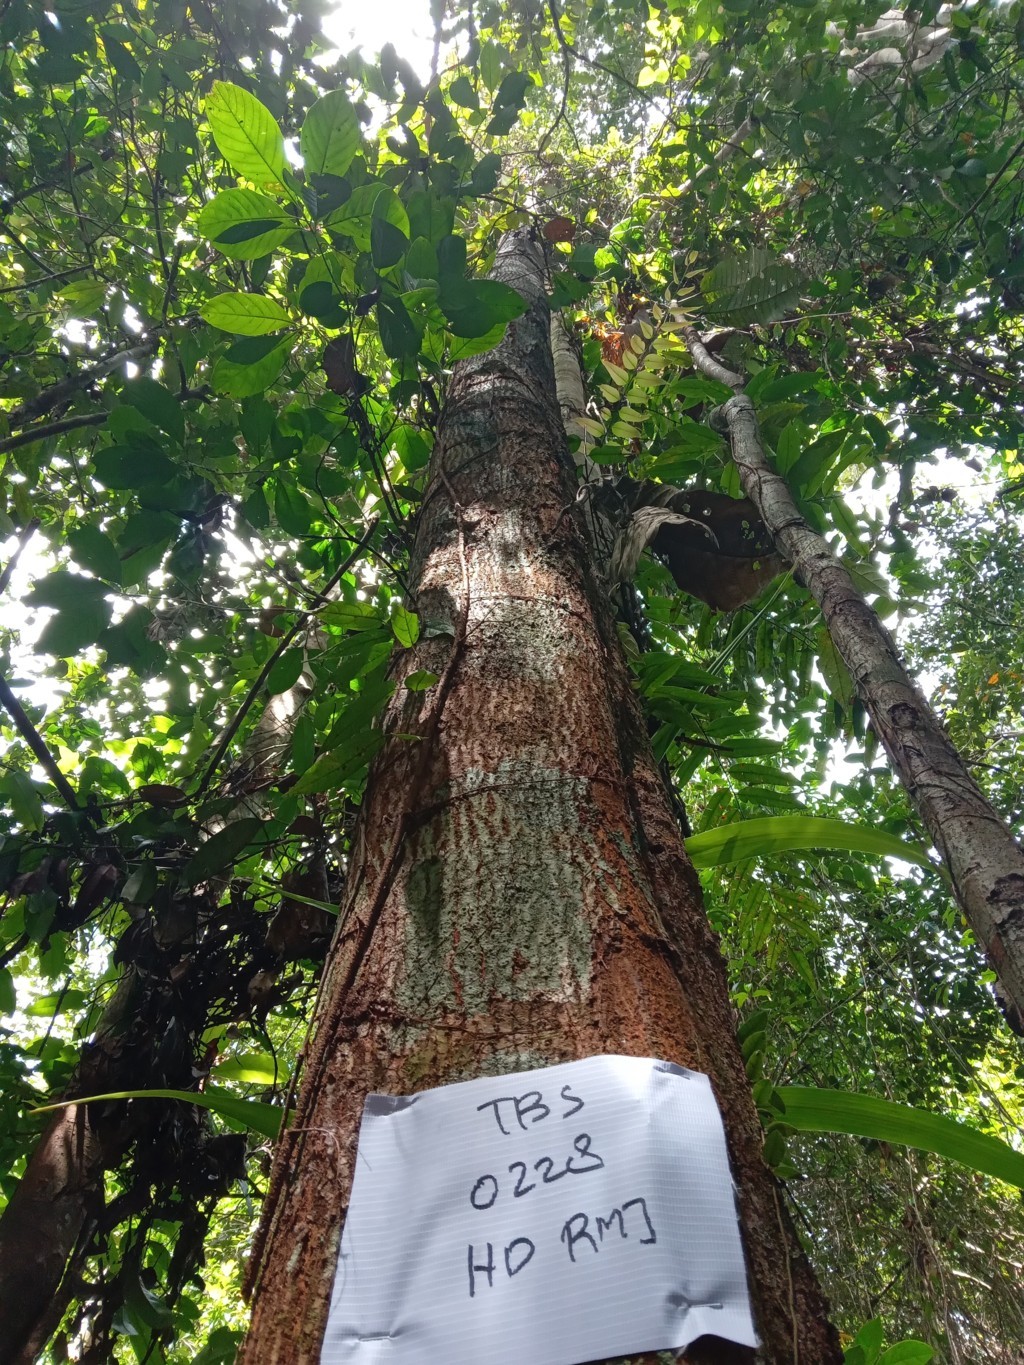 TBS
0228
HD RMJ